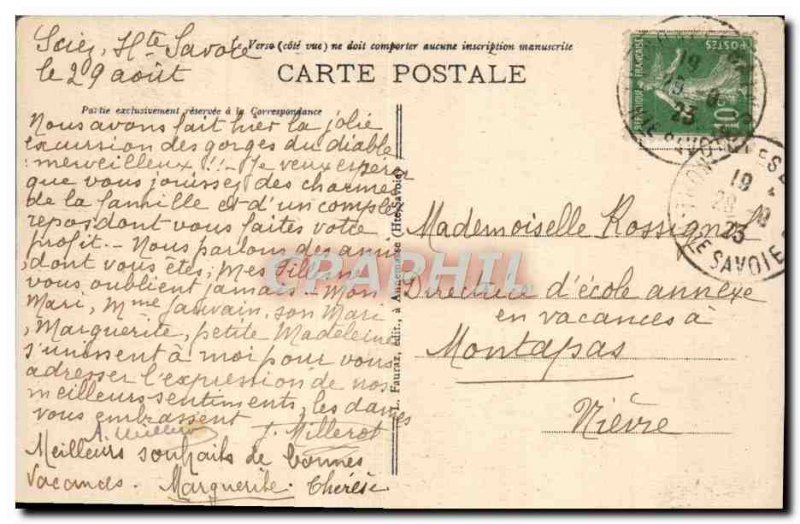 Sciez, Hte Savoie
le 29 août
Le Verso (côté vue) ne doit comporter aucune inscription manuscrite
CARTE POSTALE
Partie exclusivement réservée à la Correspondance
Nous avons fait hier la jolie
excursion des gorges du diable
merveilleux !!- Je veux espérer
que vous jouissez des charmes
de la famille et d'un complet
repos dont vous faites votre
profit.- Nous parlons des amis
dont vous êtes, Mes
vous oublient jamais - Mon
Mari, Mme Jauvain, son Mari
, Marguerite, petite Madeleine
s'unissent à moi pour vous
adresser l'expression de nos
meilleurs sentiments, les dames
vous embrassent
J. Millerot
Meilleurs souhaits de bonnes
Vacances. Marguerite. Thérèse
L. Fauraz, édit., à Annemasse (Hte-Savoie)
Mademoiselle Rossignol
Directrice d'école annexe
en vacances à
Montapas
Nièvre
POSTES
REPUBLIQUE FRANÇAISE
10c
19
23
TE SAVOIE
19
23
TE SAVOIE
CPAPHIL